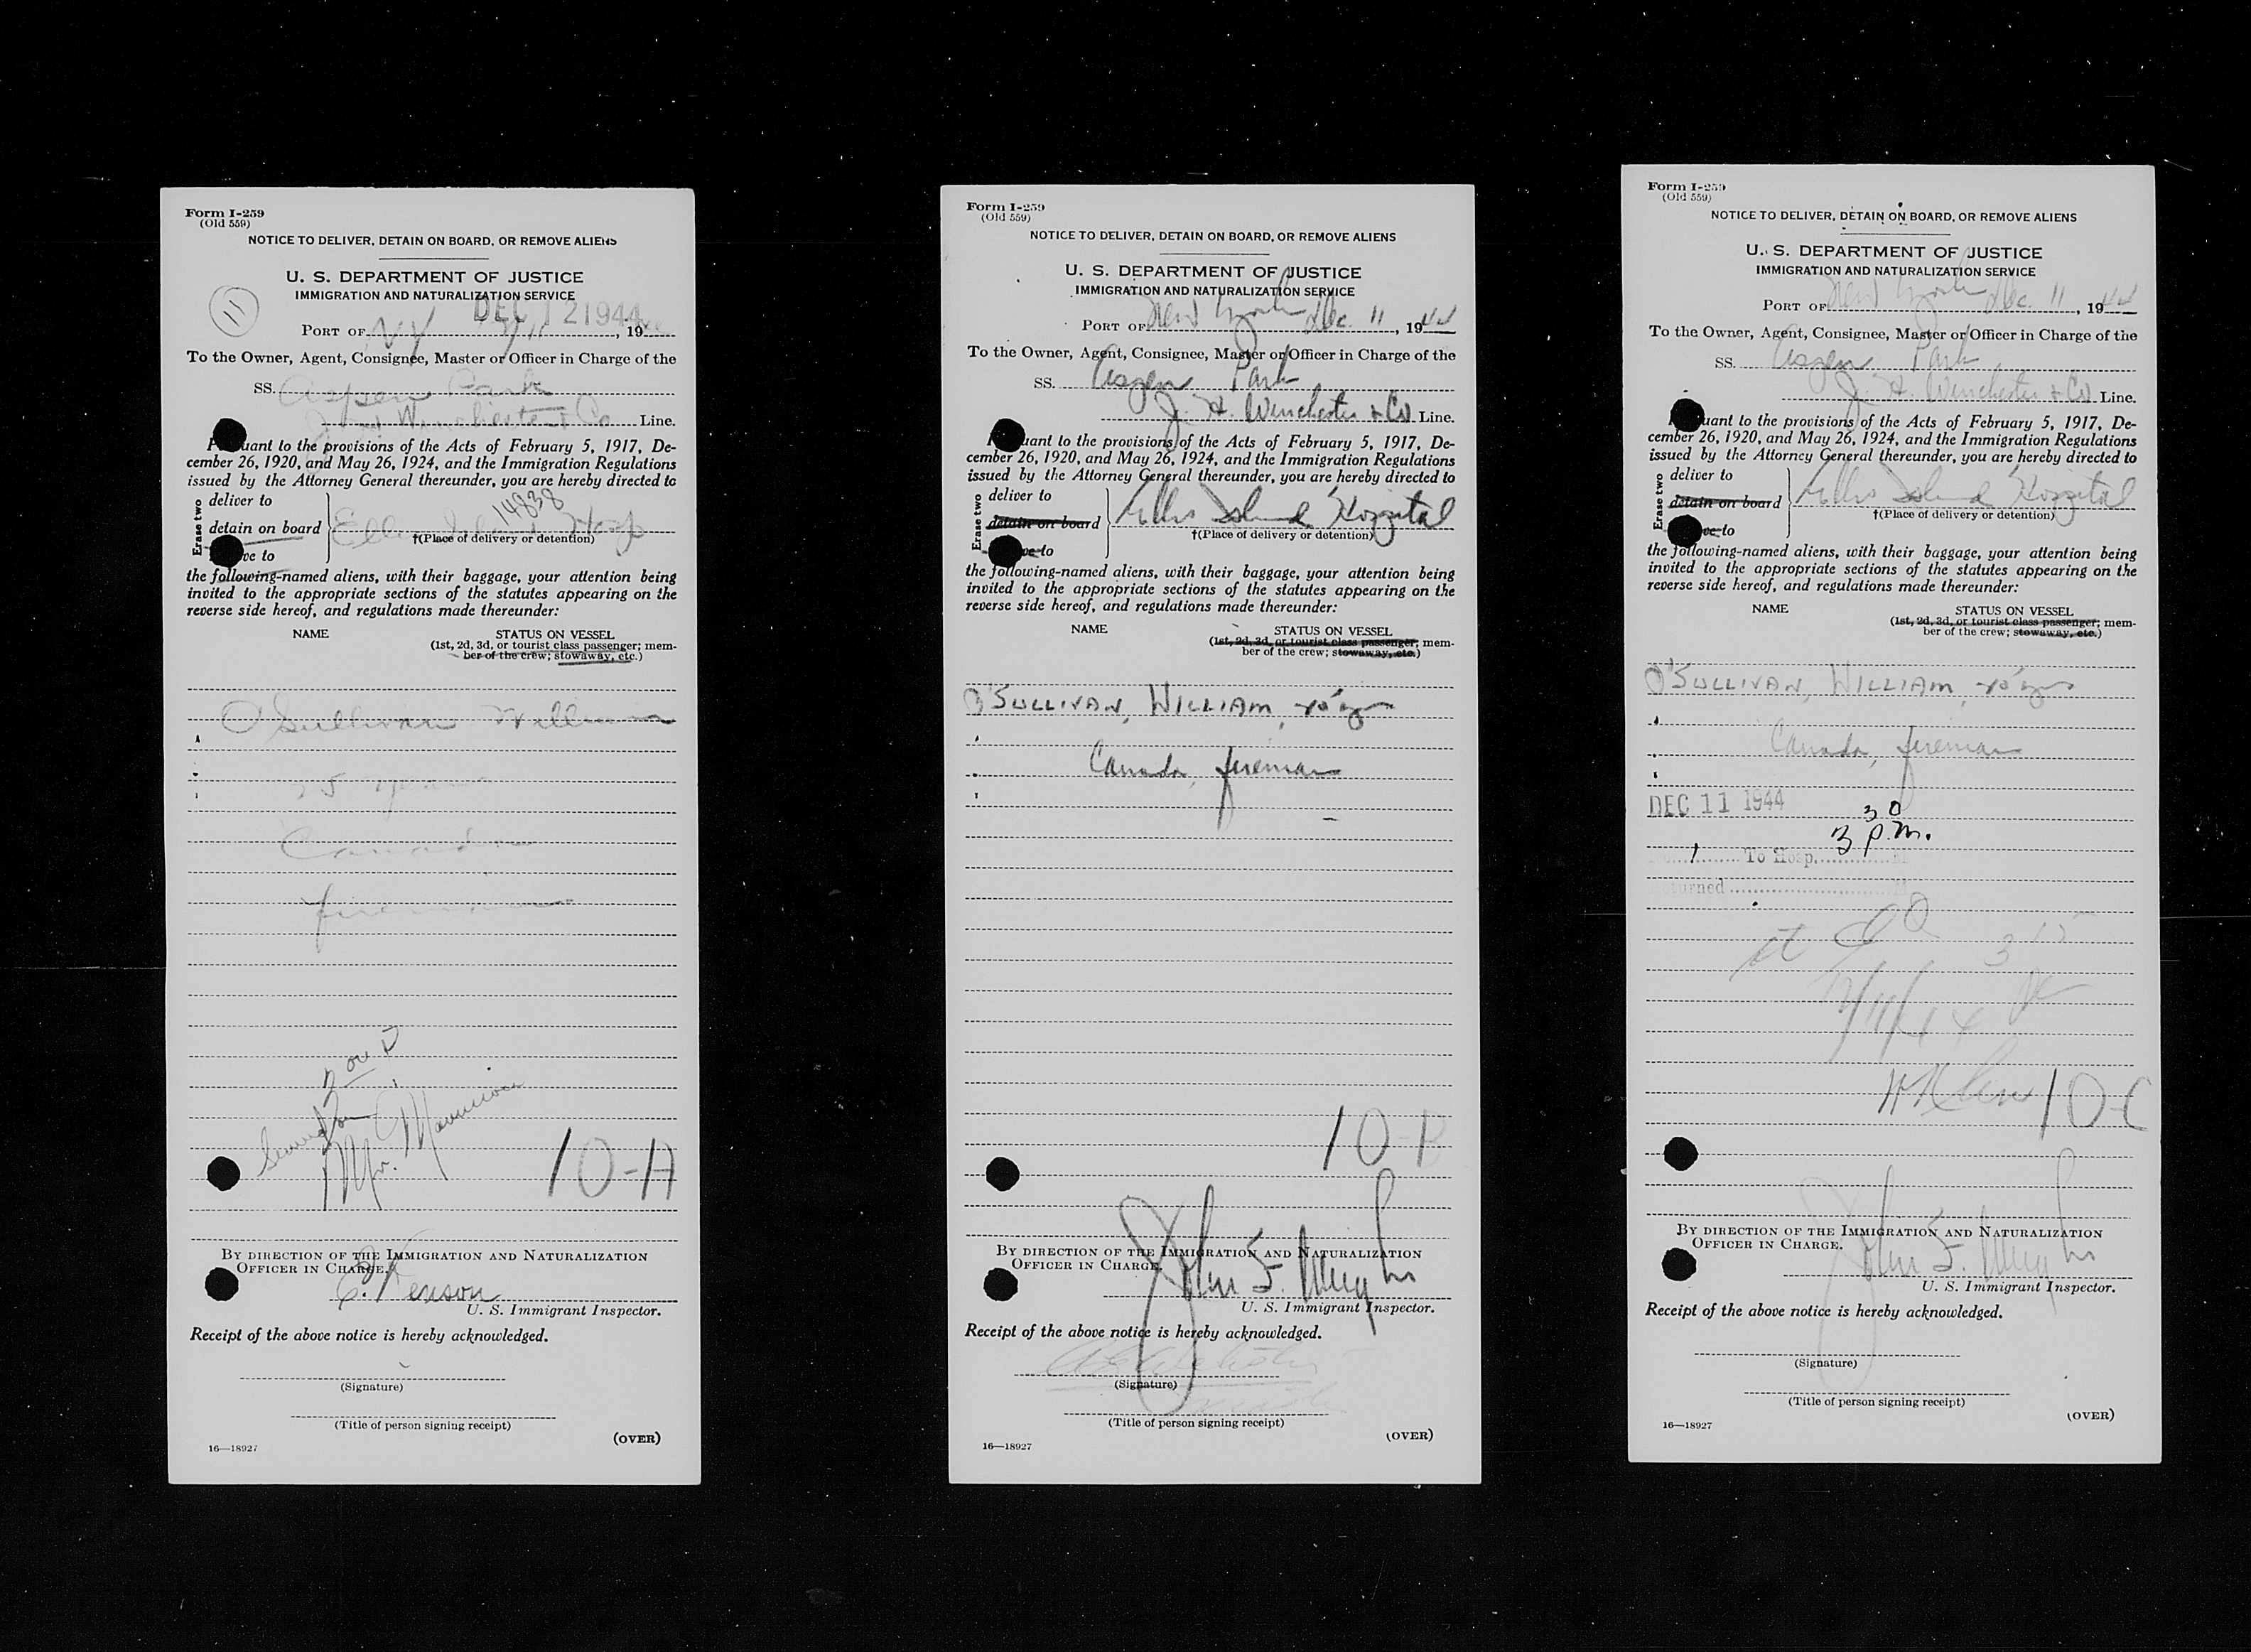 Form I-259
(Old 559)
NOTICE TO DELIVER, DETAIN ON BOARD, OR REMOVE ALIENS
U. S. DEPARTMENT OF JUSTICE
IMMIGRATION AND NATURALIZATION SERVICE
11
DEC 12 1944
PORT OF NY, 19
To the Owner, Agent, Consignee, Master or Officer in Charge of the
SS. Aspen Park
J. H. Winchester & Co Line.
Pursuant to the provisions of the Acts of February 5, 1917, De-
cember 26, 1920, and May 26, 1924, and the Immigration Regulations
issued by the Attorney General thereunder, you are hereby directed to
Erase two
deliver to
14838
detain on board Ellis Island Hosp
†(Place of delivery or detention)
remove to
the following-named aliens, with their baggage, your attention being
invited to the appropriate sections of the statutes appearing on the
reverse side hereof, and regulations made thereunder:
NAME STATUS ON VESSEL
(1st, 2d, 3d, or tourist class passenger; mem-
ber of the crew; stowaway, etc.)
O'Sullivan William
Canada
fireman
Mr.
10-A
BY DIRECTION OF THE IMMIGRATION AND NATURALIZATION
OFFICER IN CHARGE.
U. S. Immigrant Inspector.
Receipt of the above notice is hereby acknowledged.
(Signature)
(Title of person signing receipt)
16—18927
(OVER)
Form I-259
(Old 559)
NOTICE TO DELIVER, DETAIN ON BOARD, OR REMOVE ALIENS
U. S. DEPARTMENT OF JUSTICE
IMMIGRATION AND NATURALIZATION SERVICE
PORT OF New York Dec. 11, 1944
To the Owner, Agent, Consignee, Master or Officer in Charge of the
SS. Aspen Park
J. H. Winchester & Co Line.
Pursuant to the provisions of the Acts of February 5, 1917, De-
cember 26, 1920, and May 26, 1924, and the Immigration Regulations
issued by the Attorney General thereunder, you are hereby directed to
Erase two
deliver to
detain on board Ellis Island Hospital
†(Place of delivery or detention)
remove to
the following-named aliens, with their baggage, your attention being
invited to the appropriate sections of the statutes appearing on the
reverse side hereof, and regulations made thereunder:
NAME STATUS ON VESSEL
(1st, 2d, 3d, or tourist class passenger; mem-
ber of the crew; stowaway, etc.)
O'SULLIVAN, WILLIAM,
Canada, fireman
10-B
BY DIRECTION OF THE IMMIGRATION AND NATURALIZATION
OFFICER IN CHARGE.
John F.
U. S. Immigrant Inspector.
Receipt of the above notice is hereby acknowledged.
(Signature)
(Title of person signing receipt)
16—18927
(OVER)
Form I-259
(Old 559)
NOTICE TO DELIVER, DETAIN ON BOARD, OR REMOVE ALIENS
U. S. DEPARTMENT OF JUSTICE
IMMIGRATION AND NATURALIZATION SERVICE
PORT OF New York Dec. 11, 1944
To the Owner, Agent, Consignee, Master or Officer in Charge of the
SS. Aspen Park
J. H. Winchester & Co Line.
Pursuant to the provisions of the Acts of February 5, 1917, De-
cember 26, 1920, and May 26, 1924, and the Immigration Regulations
issued by the Attorney General thereunder, you are hereby directed to
Erase two
deliver to
detain on board Ellis Island Hospital
†(Place of delivery or detention)
remove to
the following-named aliens, with their baggage, your attention being
invited to the appropriate sections of the statutes appearing on the
reverse side hereof, and regulations made thereunder:
NAME STATUS ON VESSEL
(1st, 2d, 3d, or tourist class passenger; mem-
ber of the crew; stowaway, etc.)
O'SULLIVAN, WILLIAM,
Canada, fireman
DEC 11 1944
3 30 P.M.
1 To Hosp.
Returned
10-C
BY DIRECTION OF THE IMMIGRATION AND NATURALIZATION
OFFICER IN CHARGE.
John F.
U. S. Immigrant Inspector.
Receipt of the above notice is hereby acknowledged.
(Signature)
(Title of person signing receipt)
16—18927
(OVER)